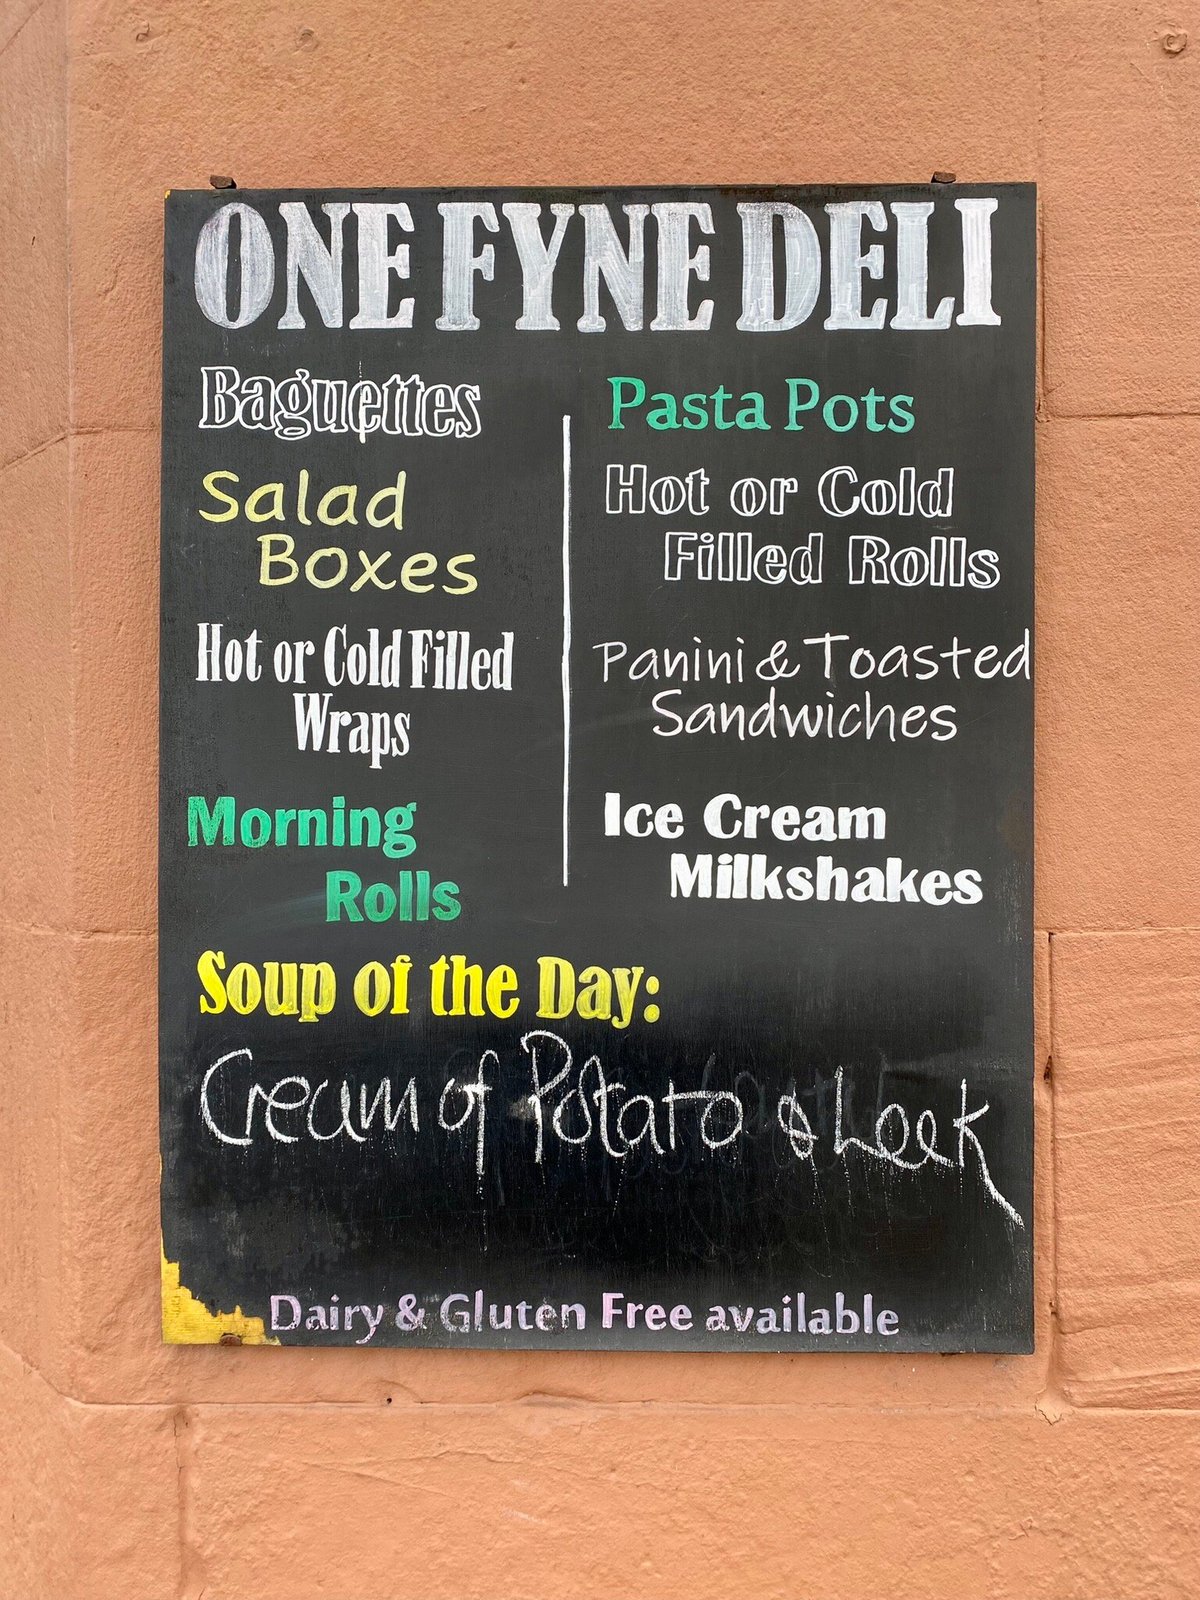 ONE FYNE DELI
Baguettes
Salad
Boxes
Hot or Cold Filled
Wraps
Morning
Rolls
Pasta Pots
Hot or Cold
Filled Rolls
Panini & Toasted
Sandwiches
Ice Cream
Milkshakes
Soup of the Day:
Cream of Potato & Leek
Dairy & Gluten Free available